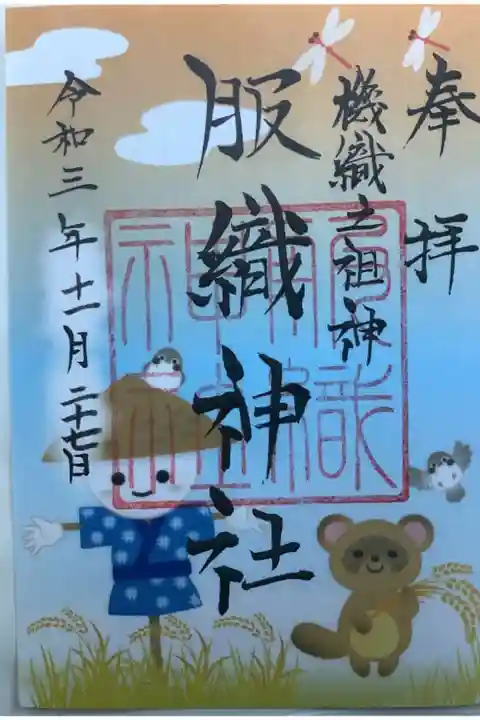 奉拝
機織之祖神
服織神社
令和三年十一月二十七日